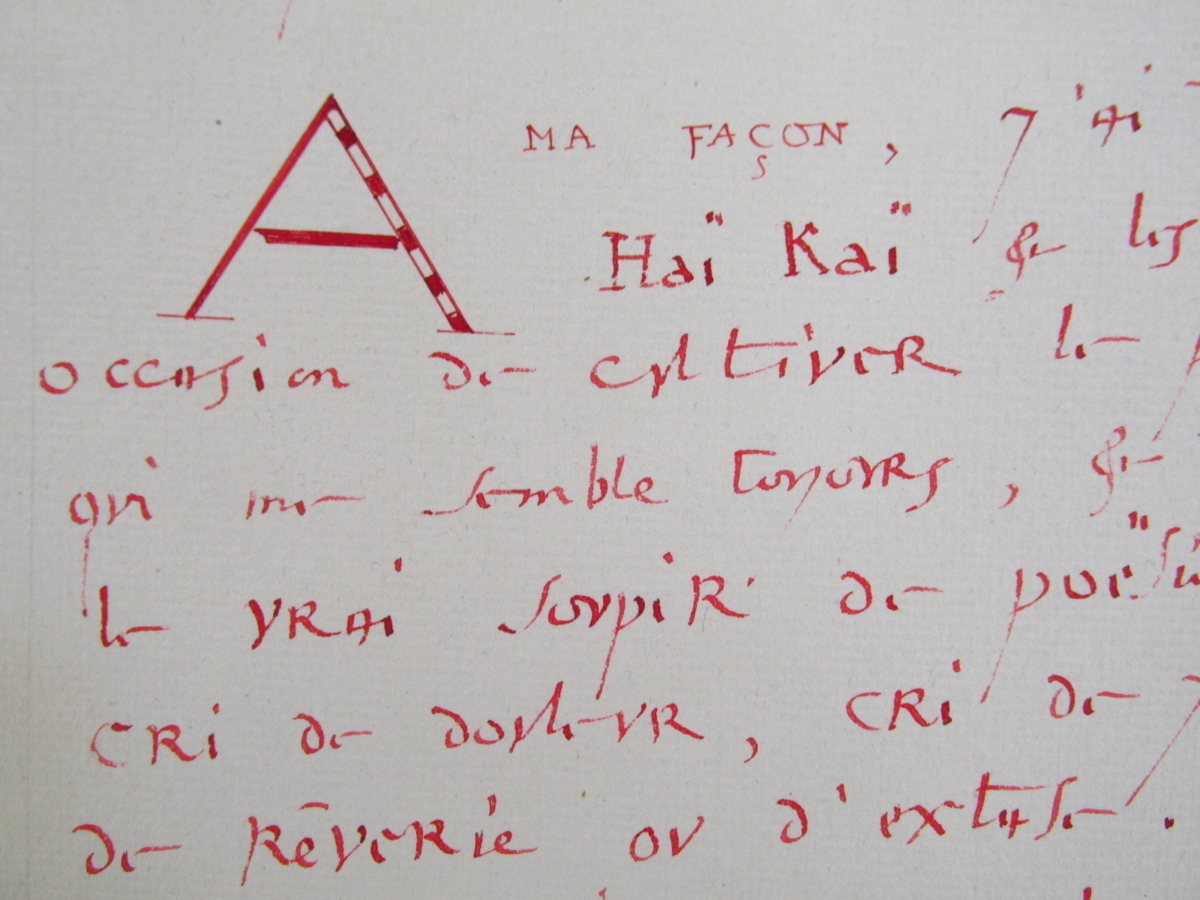 A MA FAÇON, j'ai
Haï Kaï & les
occasion de cultiver le
qui me semble toujours, &
le vrai soupir de poësi
cri de douleur, cri de
de rēverie ou d'extase.